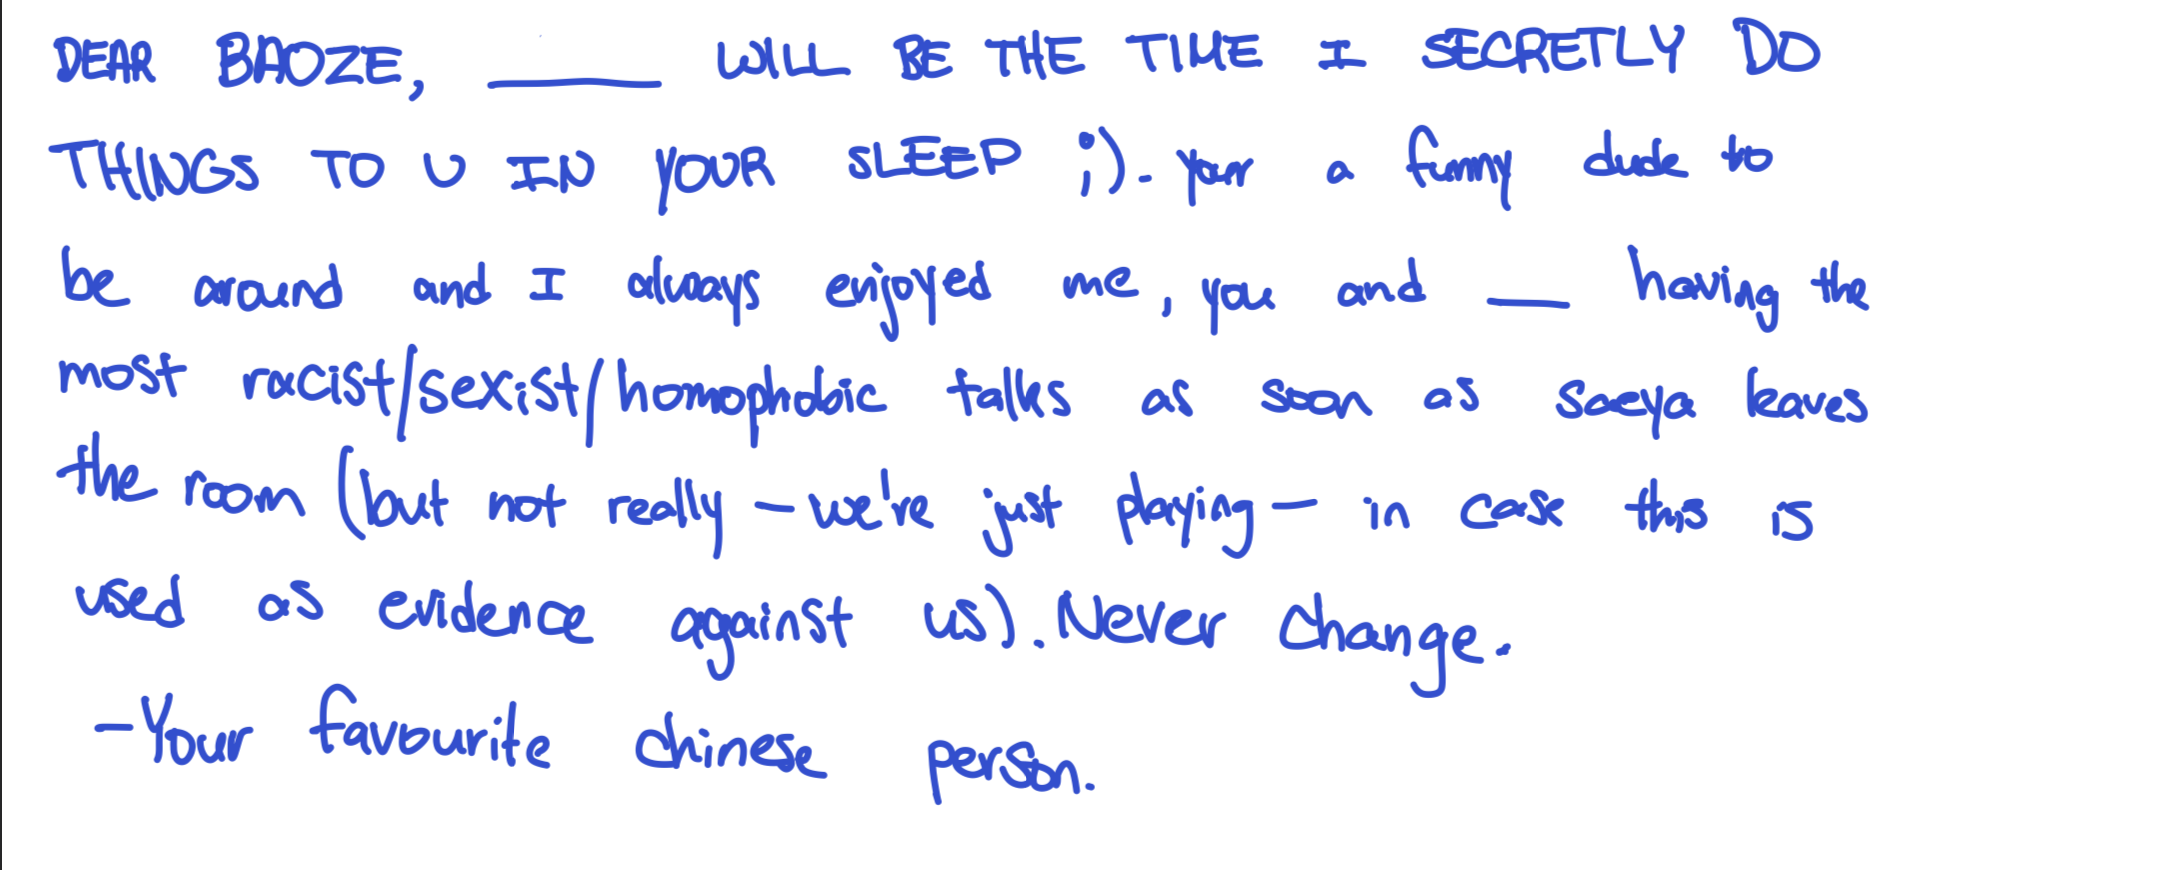 DEAR BAOZE, ______ WILL BE THE TIME I SECRETLY DO
THINGS TO U IN YOUR SLEEP ;). Your a funny dude to
be around and I always enjoyed me, you and ___ having the
most racist/sexist/homophobic talks as soon as saeya leaves
the room (but not really - we're just playing - in case this is
used as evidence against us). Never change.
- Your favourite chinese person.